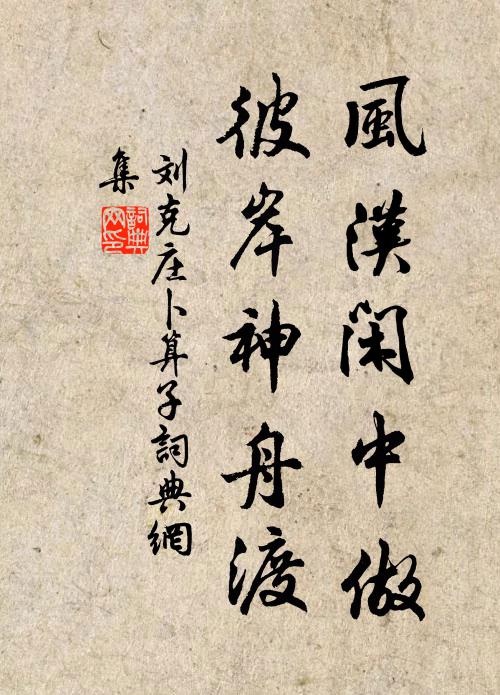 風漢閑中做
彼岸神舟渡
刘克庄卜算子詞典網
集
詞典
网印